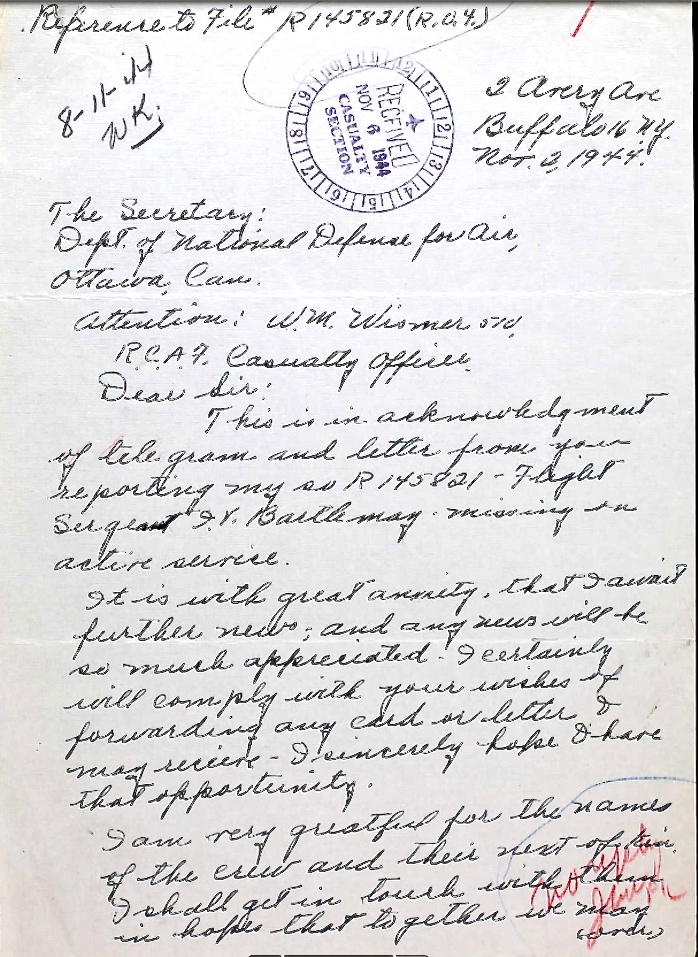 Reference to File # R145821 (R.O.4.)
8-11-44
WK.
RECEIVED
NOV 6 1944
CASUALTY
SECTION
2 Avery Ave
Buffalo 16 NY.
Nov. 2, 1944.
The Secretary:
Dept. of National Defense for Air,
Ottawa, Can.
Attention: W.M. Wismer
R.C.A.F. Casualty Officer.
Dear Sir:
This is in acknowledgment
of telegram and letter from you
reporting my so R145821 - Flight
Sergeant I.V. Bartlemay missing on
active service.
It is with great anxity, that I await
further news; and any news will be
so much appreciated. I certainly
will comply with your wishes of
forwarding any card or letter I
may receive - I sincerely hope I have
that opportunity.
I am very greatful for the names
of the crew and their next of kin.
I shall get in touch with them
in hopes that together we may
(over)